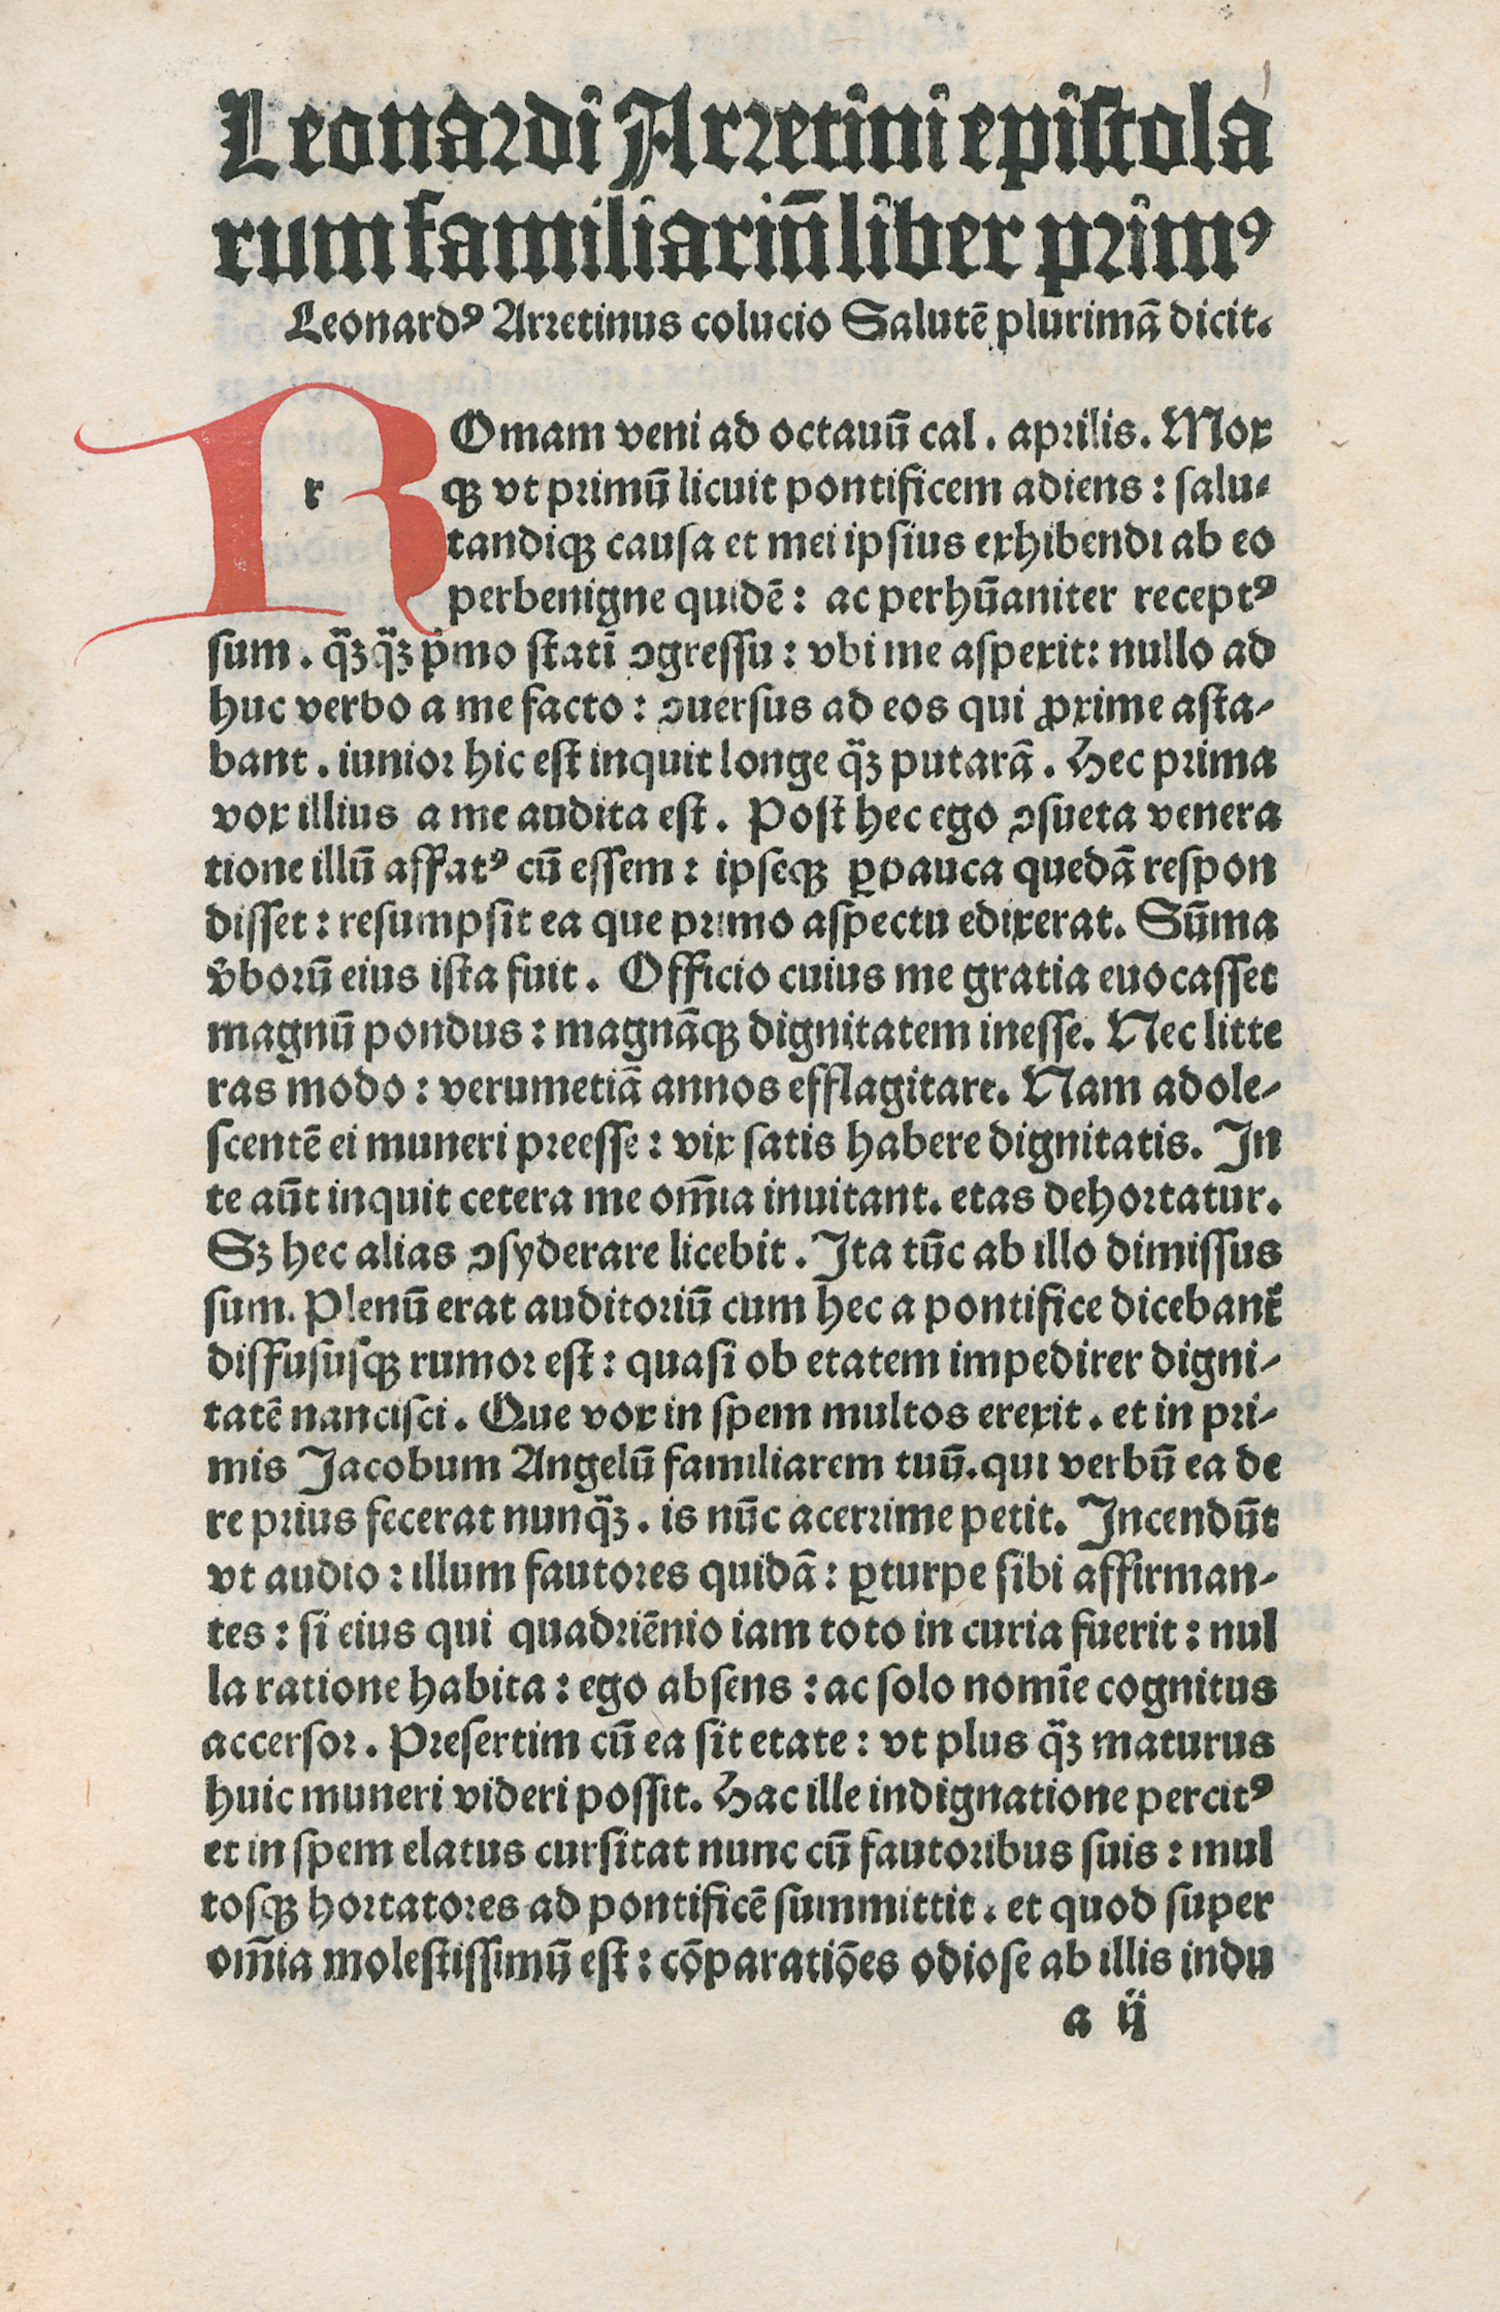 Leonardi Arretini epistola
rum familiariū liber primꝰ
Leonardꝰ Arretinus colucio Salutē plurimā dicit.
ROmam veni ad octauū cal. aprilis. Mox
r
qꝫ vt primū licuit pontificem adiens: salu-
tandiqꝫ causa et mei ipsius exhibendi ab eo
perbenigne quidē: ac perhūaniter receptꝰ
sum. qͣꝫqͣꝫ pͥmo statī ꝯgressu: vbi me aspexit: nullo ad
huc verbo a me facto: ꝯuersus ad eos qui ꝓxime asta-
bant. iunior hic est inquit longe qͣꝫ putarā. Hec prima
vox illius a me audita est. Post hec ego ꝯsueta venera
tione illū affatꝰ cū essem: ipseqꝫ ꝑpauca quedā respon
disset: resumpsit ea que primo aspectu edixerat. Sūma
v̄borū eius ista fuit. Officio cuius me gratia euocasset
magnū pondus: magnāqꝫ dignitatem inesse. Nec litte
ras modo: verumetiā annos efflagitare. Nam adole-
scentē ei muneri preesse: vix satis habere dignitatis. In
te aūt inquit cetera me om̄ia inuitant. etas dehortatur.
Sꝫ hec alias ꝯsyderare licebit. Ita tūc ab illo dimissus
sum. Plenū erat auditoriū cum hec a pontifice dicebant᷑
diffususqꝫ rumor est: quasi ob etatem impedirer digni-
tatē nancisci. Que vox in spem multos erexit. et in pri-
mis Jacobum Angelū familiarem tuū. qui verbū ea de
re prius fecerat nunqͣꝫ. is nūc acerrime petit. Incendūt
vt audio: illum fautores quidā: ꝑturpe sibi affirman-
tes: si eius qui quadriēnio iam toto in curia fuerit: nul
la ratione habita: ego absens: ac solo nomīe cognitus
accersor. Presertim cū ea sit etate: vt plus qͣꝫ maturus
huic muneri videri possit. Hac ille indignatione percitꝰ
et in spem elatus cursitat nunc cū fautoribus suis: mul
tosqꝫ hortatores ad pontificē summittit. et quod super
om̄ia molestissimū est: cōparatiōes odiose ab illis indu
a ij